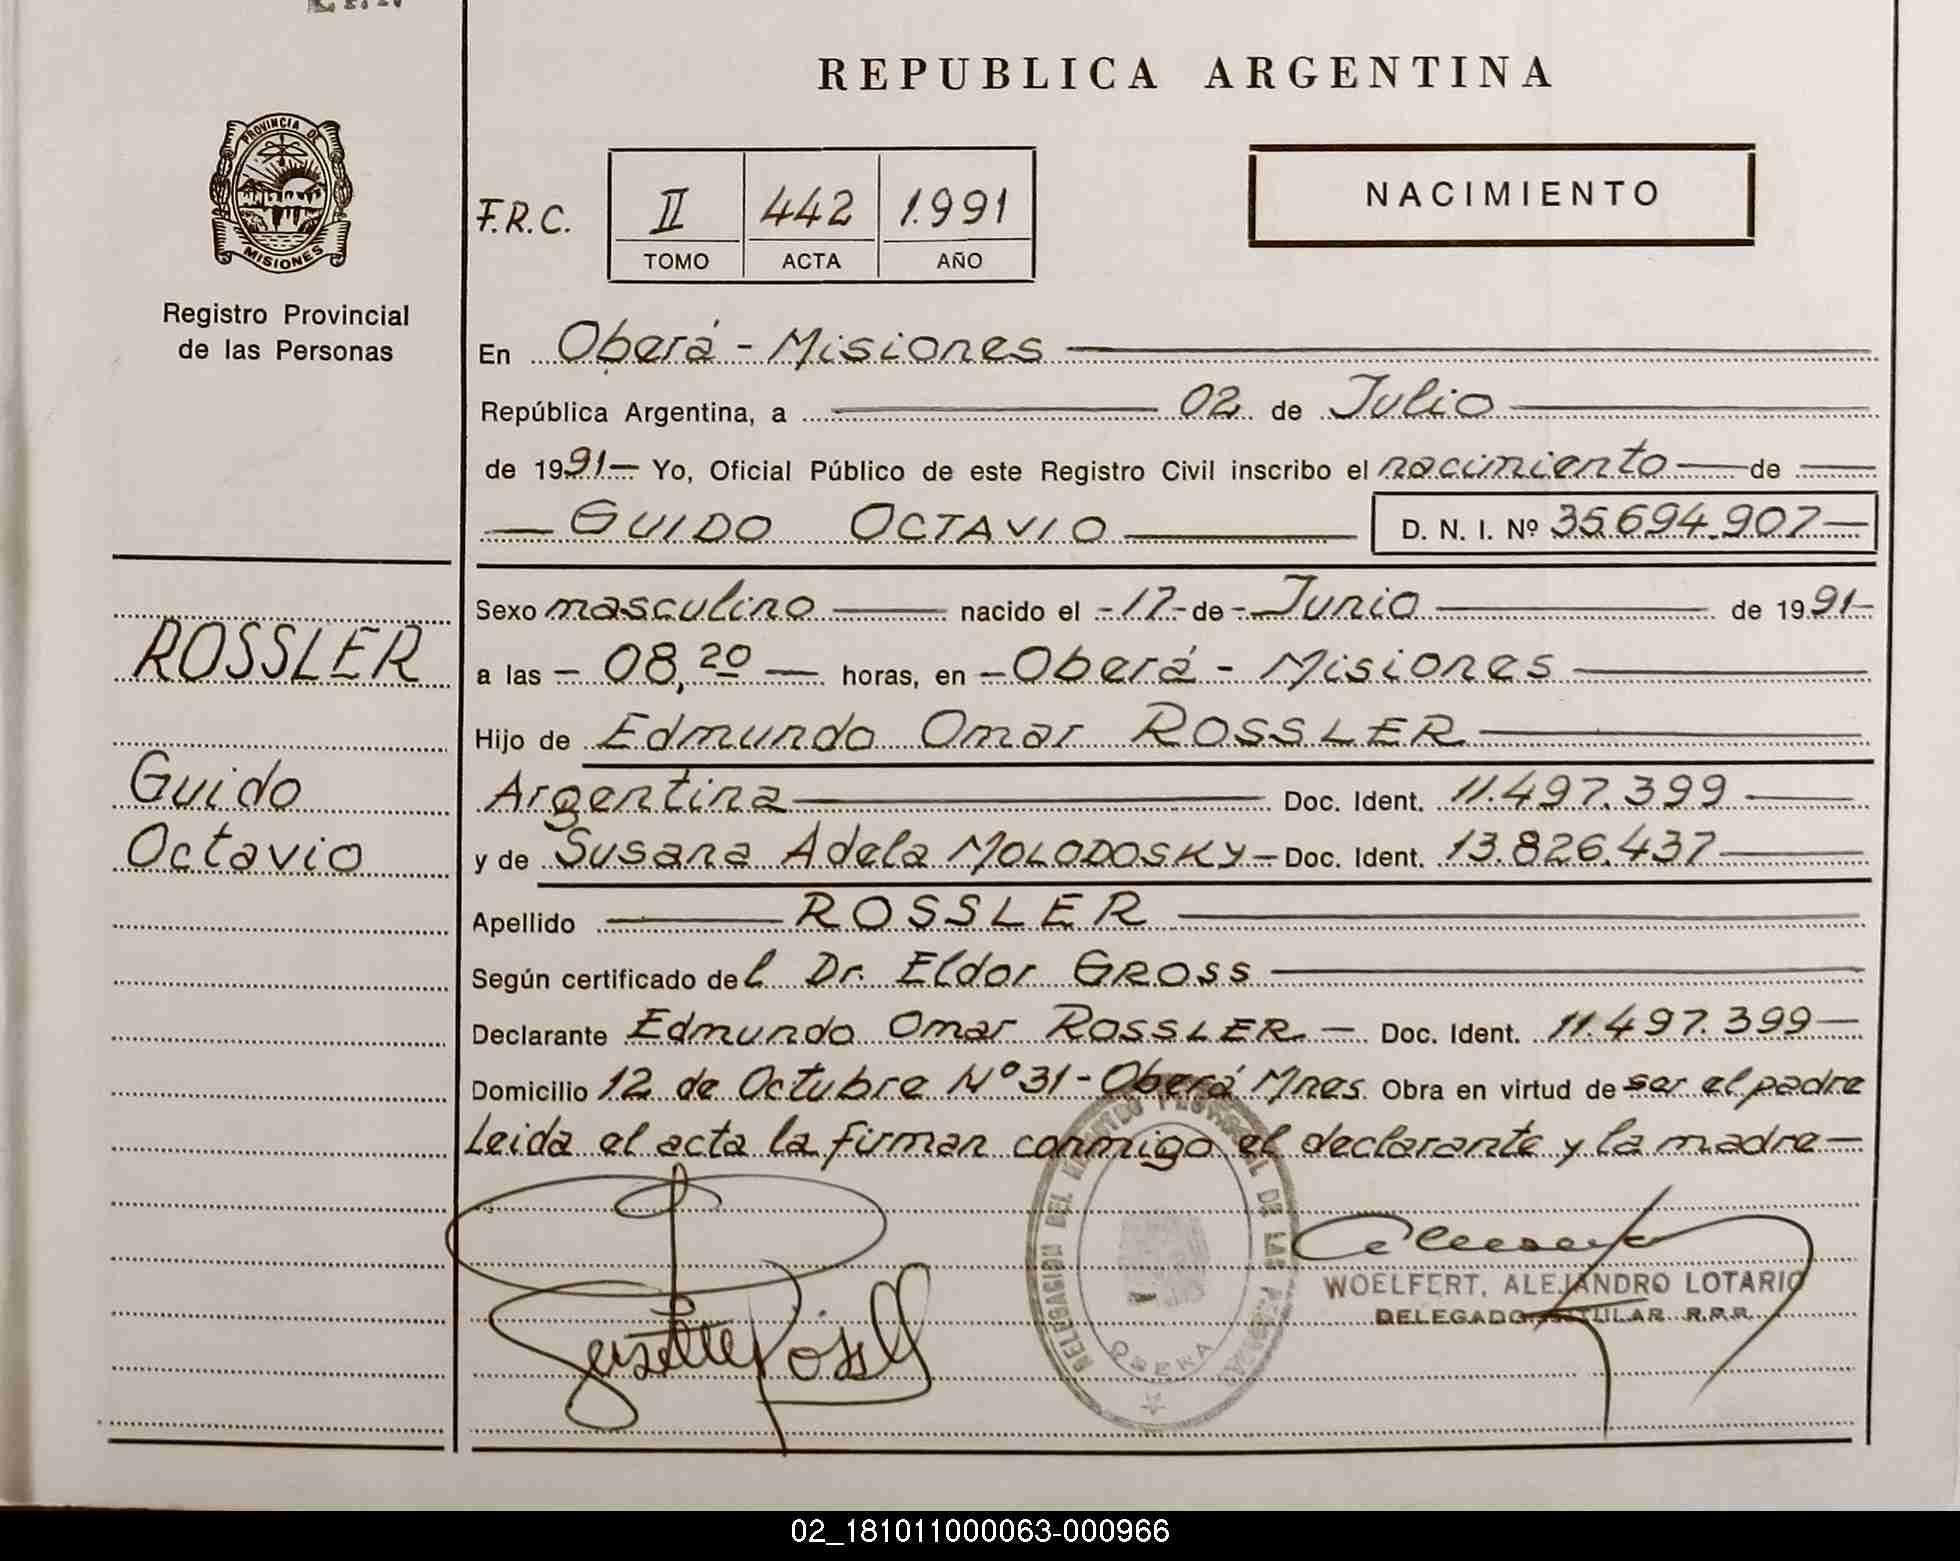 REPUBLICA ARGENTINA
PROVINCIA DE
MISIONES
Registro Provincial
de las Personas
F.R.C. II 442 1.991
TOMO ACTA AÑO
NACIMIENTO
En Oberá - Misiones
República Argentina, a 02 de Julio
de 1991 Yo, Oficial Público de este Registro Civil inscribo el nacimiento de
GUIDO OCTAVIO D. N. I. Nº 35.694.907
Sexo masculino nacido el -17- de - Junio de 1991
a las - 08,20 horas, en - Oberá - Misiones
Hijo de Edmundo Omar ROSSLER
Argentina Doc. Ident. 11.497.399
y de Susana Adela MOLODOSKY - Doc. Ident. 13.826.437
Apellido ROSSLER
Según certificado del Dr. Eldor GROSS
Declarante Edmundo Omar ROSSLER - Doc. Ident. 11.497.399
Domicilio 12 de Octubre Nº 31 - Oberá Mnes. Obra en virtud de ser el padre
Leida el acta la firman conmigo el declarante y la madre
ROSSLER
Guido
Octavio
DELEGACION DEL REGISTRO PROVINCIAL DE LAS PERSONAS
OBERA
WOELFERT, ALEJANDRO LOTARIO
DELEGADO TITULAR R.P.P.
02_181011000063-000966